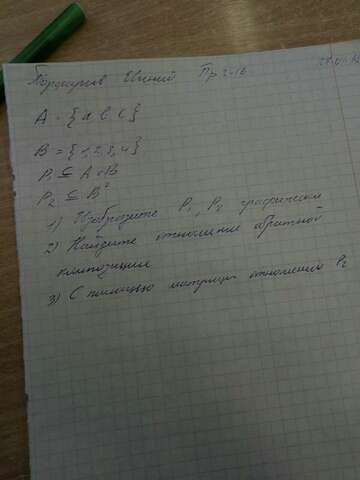 Пр 2-16
A = {a b c}
B = {1, 2, 3, 4}
P₁ ⊆ A × B
P₂ ⊆ B²
1) Изобразите P₁, P₂ графически
2) Найдите отношение обратной
композиции
3) С помощью матрицы отношений P₂